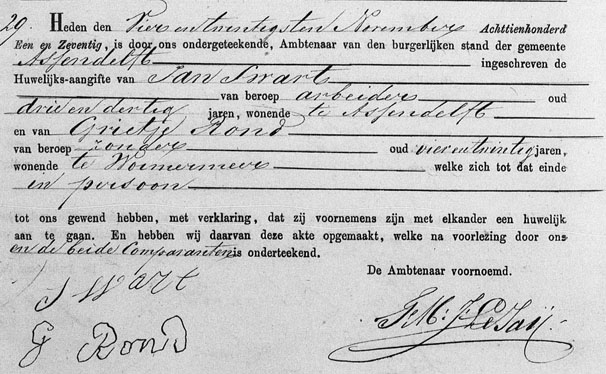 29. Heden den Vier en twintigsten November Achttienhonderd
Een en Zeventig, is door ons ondergeteekende, Ambtenaar van den burgerlijken stand der gemeente
Assendelft ingeschreven de
Huwelijks-aangifte van Jan Swart
van beroep arbeider oud
drie en dertig jaren, wonende te Assendelft
en van Grietje Rond
van beroep zonder oud vier en twintig jaren,
wonende te Wormermeer welke zich tot dat einde
in persoon
tot ons gewend hebben, met verklaring, dat zij voornemens zijn met elkander een huwelijk
aan te gaan. En hebben wij daarvan deze akte opgemaakt, welke na voorlezing door ons
en de beide Comparanten is onderteekend.
De Ambtenaar voornoemd.
J Swart
G Rond